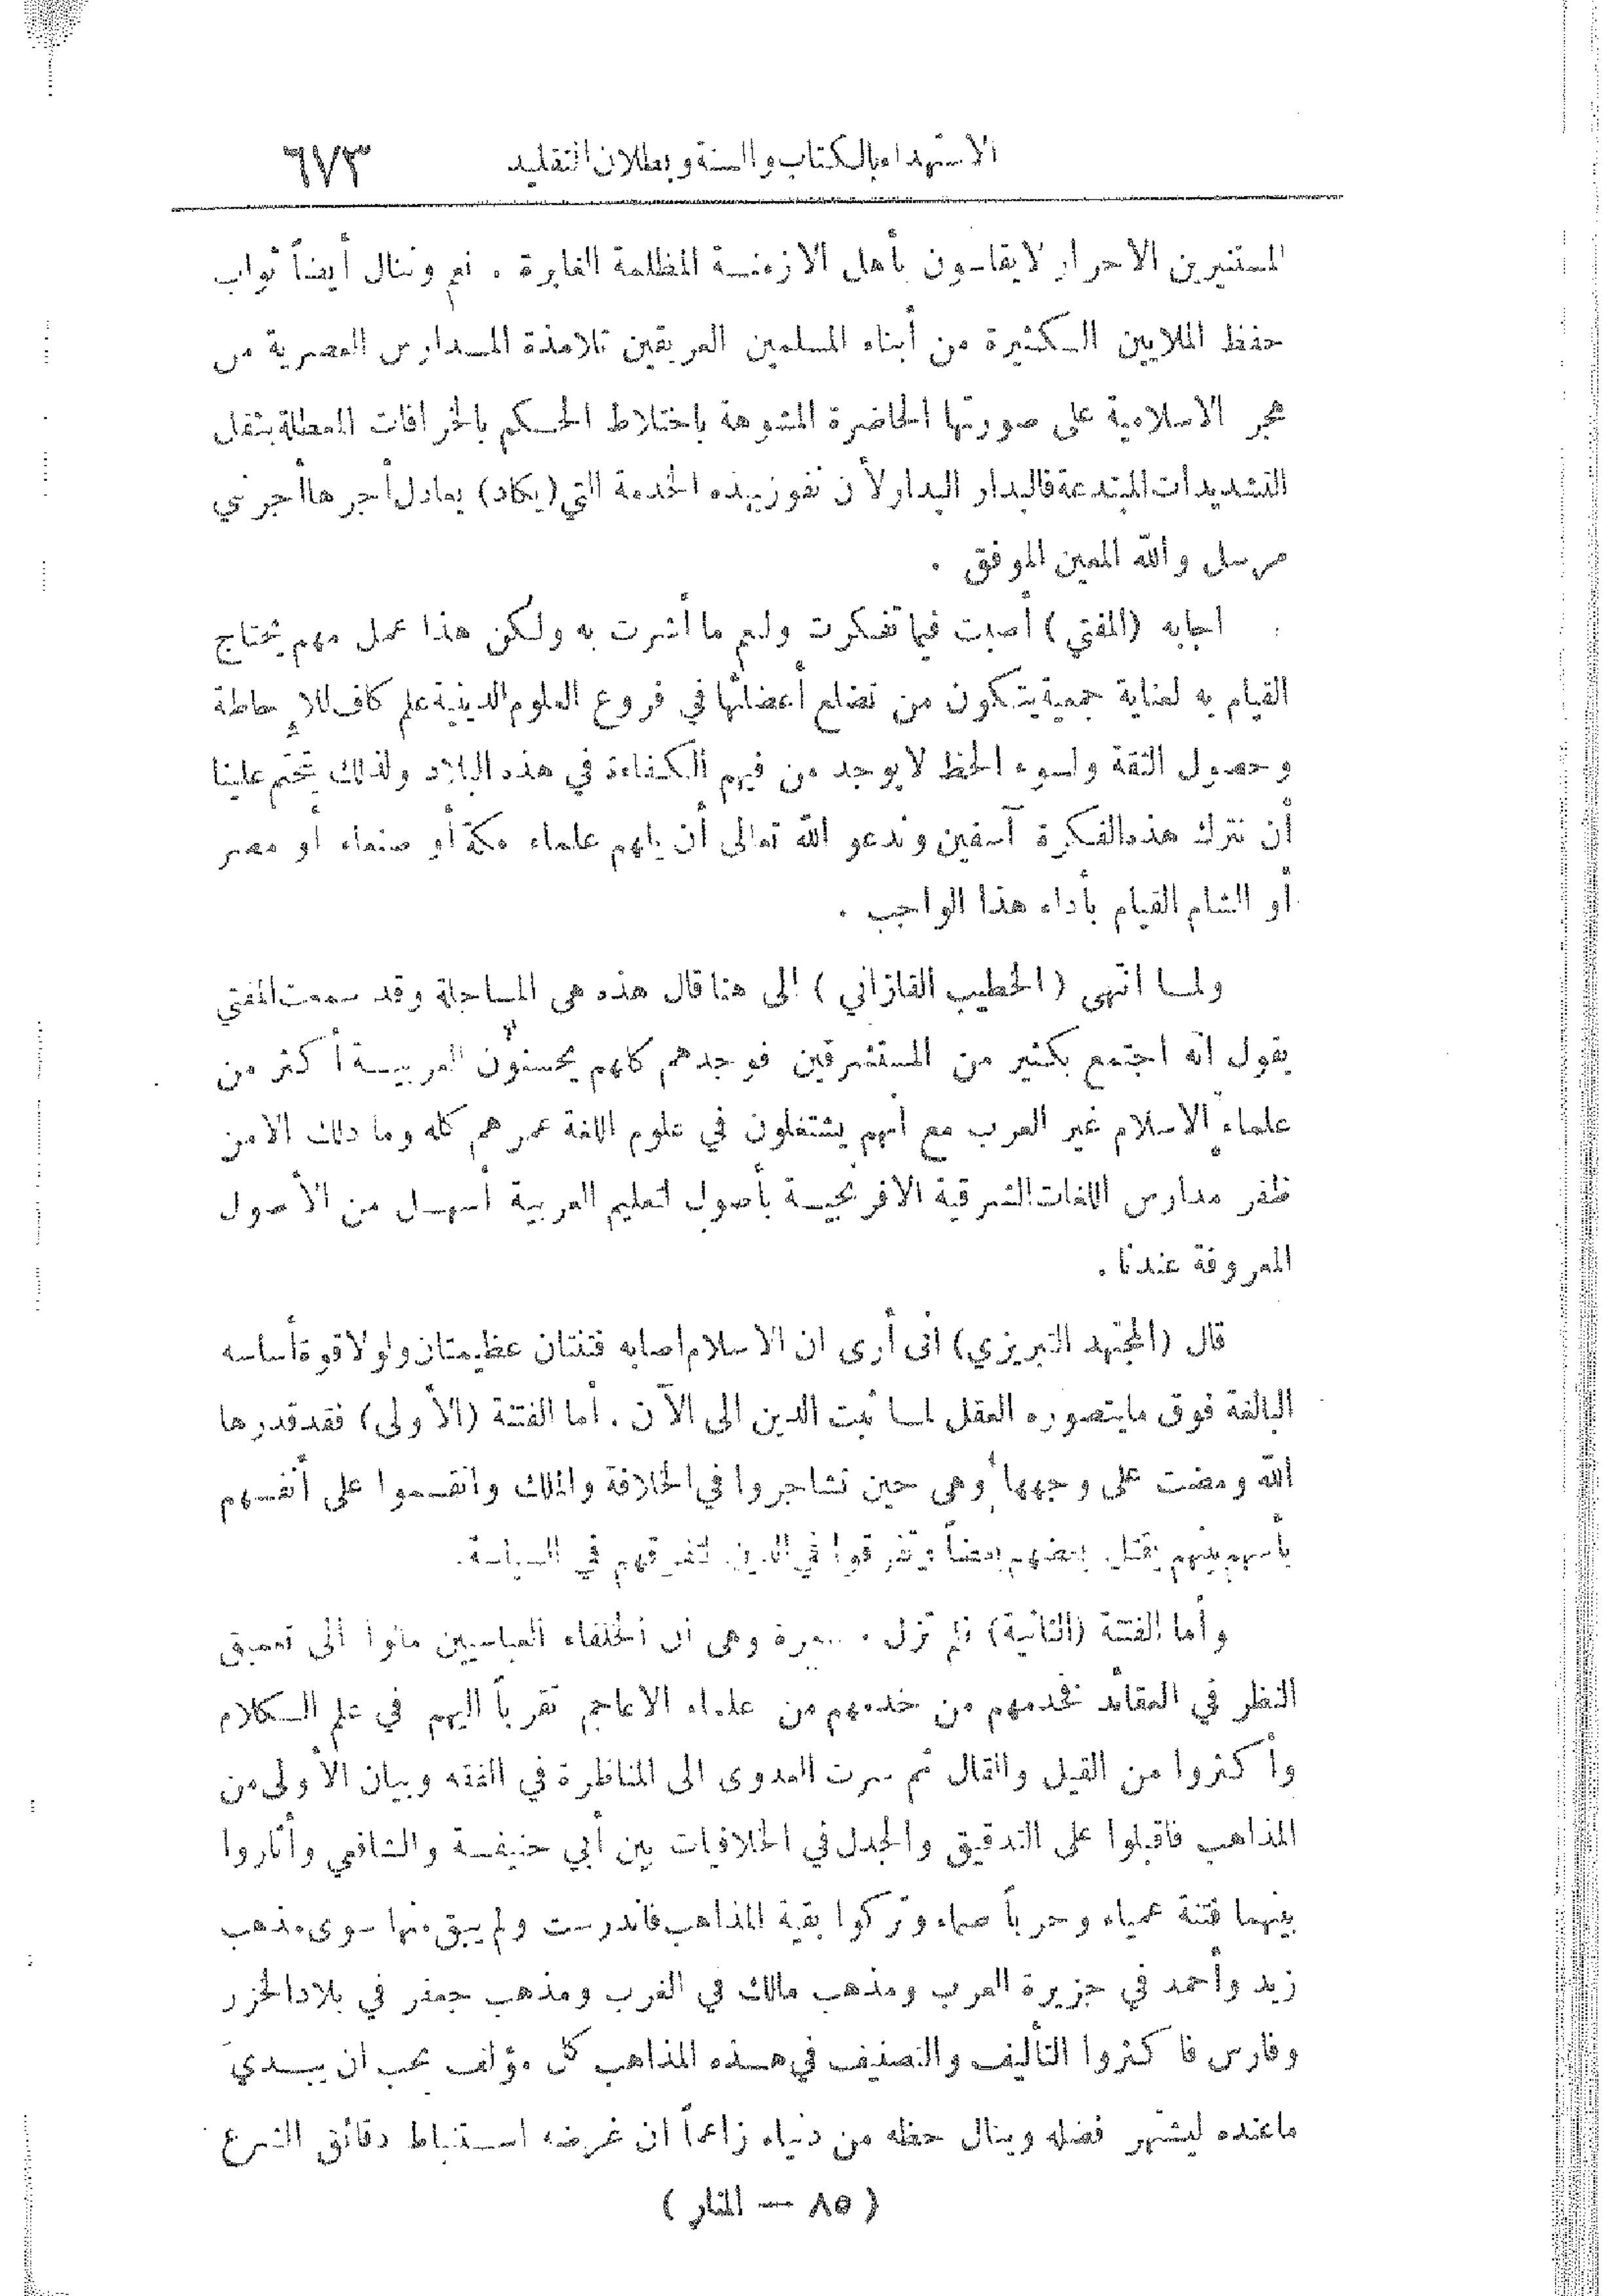 الاستهداء بالكتاب والسنة وبطلان التقليد ٦٧٣
المستنيرين الاحرار لا يقاسون بأهل الازمنة المظلمة الغابرة . نعم وننال أيضاً ثواب
حفظ الملايين الكثيرة من أبناء المسلمين العريقين تلامذة المدارس العصرية من
هجر الاسلامية على صورتها الحاضرة المشوهة باختلاط الحكم بالخرافات المعطلة بثقل
التشديدات المبتدعة فالبدار البدار لأن نفوز بهذه الخدمة التي (يكاد) يعادل أجرها أجر نبي
مرسل والله المعين الموفق .
اجابه (المفتي) أصبت فيما تفكرت ولنعم ما أشرت به ولكن هذا عمل مهم يحتاج
القيام به لعناية جمعية يتكون من تضلع أعضائها في فروع العلوم الدينية علم كاف للاحاطة
وحصول الثقة ولسوء الحظ لا يوجد من فيهم الكفاءة في هذه البلاد ولذلك يتحتم علينا
أن نترك هذه الفكرة آسفين وندعو الله تعالى أن يلهم علماء مكة أو صنعاء أو مصر
أو الشام القيام بأداء هذا الواجب .
ولما انتهى (الخطيب القازاني) الى هنا قال هذه هي المساجلة وقد سمعت المفتي
يقول انه اجتمع بكثير من المستشرقين فوجدهم كلهم يحسنون العربية أكثر من
علماء الاسلام غير العرب مع أنهم يشتغلون في علوم اللغة عمرهم كله وما ذلك الا من
ظفر مدارس اللغات الشرقية الافرنجية بأصول لتعليم العربية أسهل من الأصول
المعروفة عندنا .
قال (المجتهد التبريزي) انى أرى ان الاسلام اصابه فتنتان عظيمتان ولولا قوة أساسه
البالغة فوق ما يتصوره العقل لما ثبت الدين الى الآن . أما الفتنة (الأولى) فقد قدرها
الله ومضت على وجهها وهي حين تشاجروا في الخلافة والملك وانقسموا على أنفسهم
بأسهم بينهم يقتل بعضهم بعضاً وتفرقوا في الدين لتفرقهم في السياسة .
وأما الفتنة (الثانية) فلم تزل مستمرة وهي ان الخلفاء العباسيين مالوا الى تعميق
النظر في العقائد فخدمهم من خدمهم من علماء الاعاجم تقرباً اليهم في علم الكلام
وأكثروا من القيل والقال ثم سرت العدوى الى المناظرة في الفقه وبيان الأولى من
المذاهب فاقبلوا على التدقيق والجدل في الخلافيات بين أبي حنيفة والشافعي وأثاروا
بينهما فتنة عمياء وحرباً صماء وتركوا بقية المذاهب فاندرست ولم يبق منها سوى مذهب
زيد وأحمد في جزيرة العرب ومذهب مالك في الغرب ومذهب جعفر في بلاد الخزر
وفارس فاكثروا التأليف والتصنيف في هذه المذاهب كل مؤلف يحب ان يبدي
ما عنده ليشتهر فضله وينال حظه من دنياه زاعماً ان غرضه استنباط دقائق الشرع
( ٨٥ — المنار )